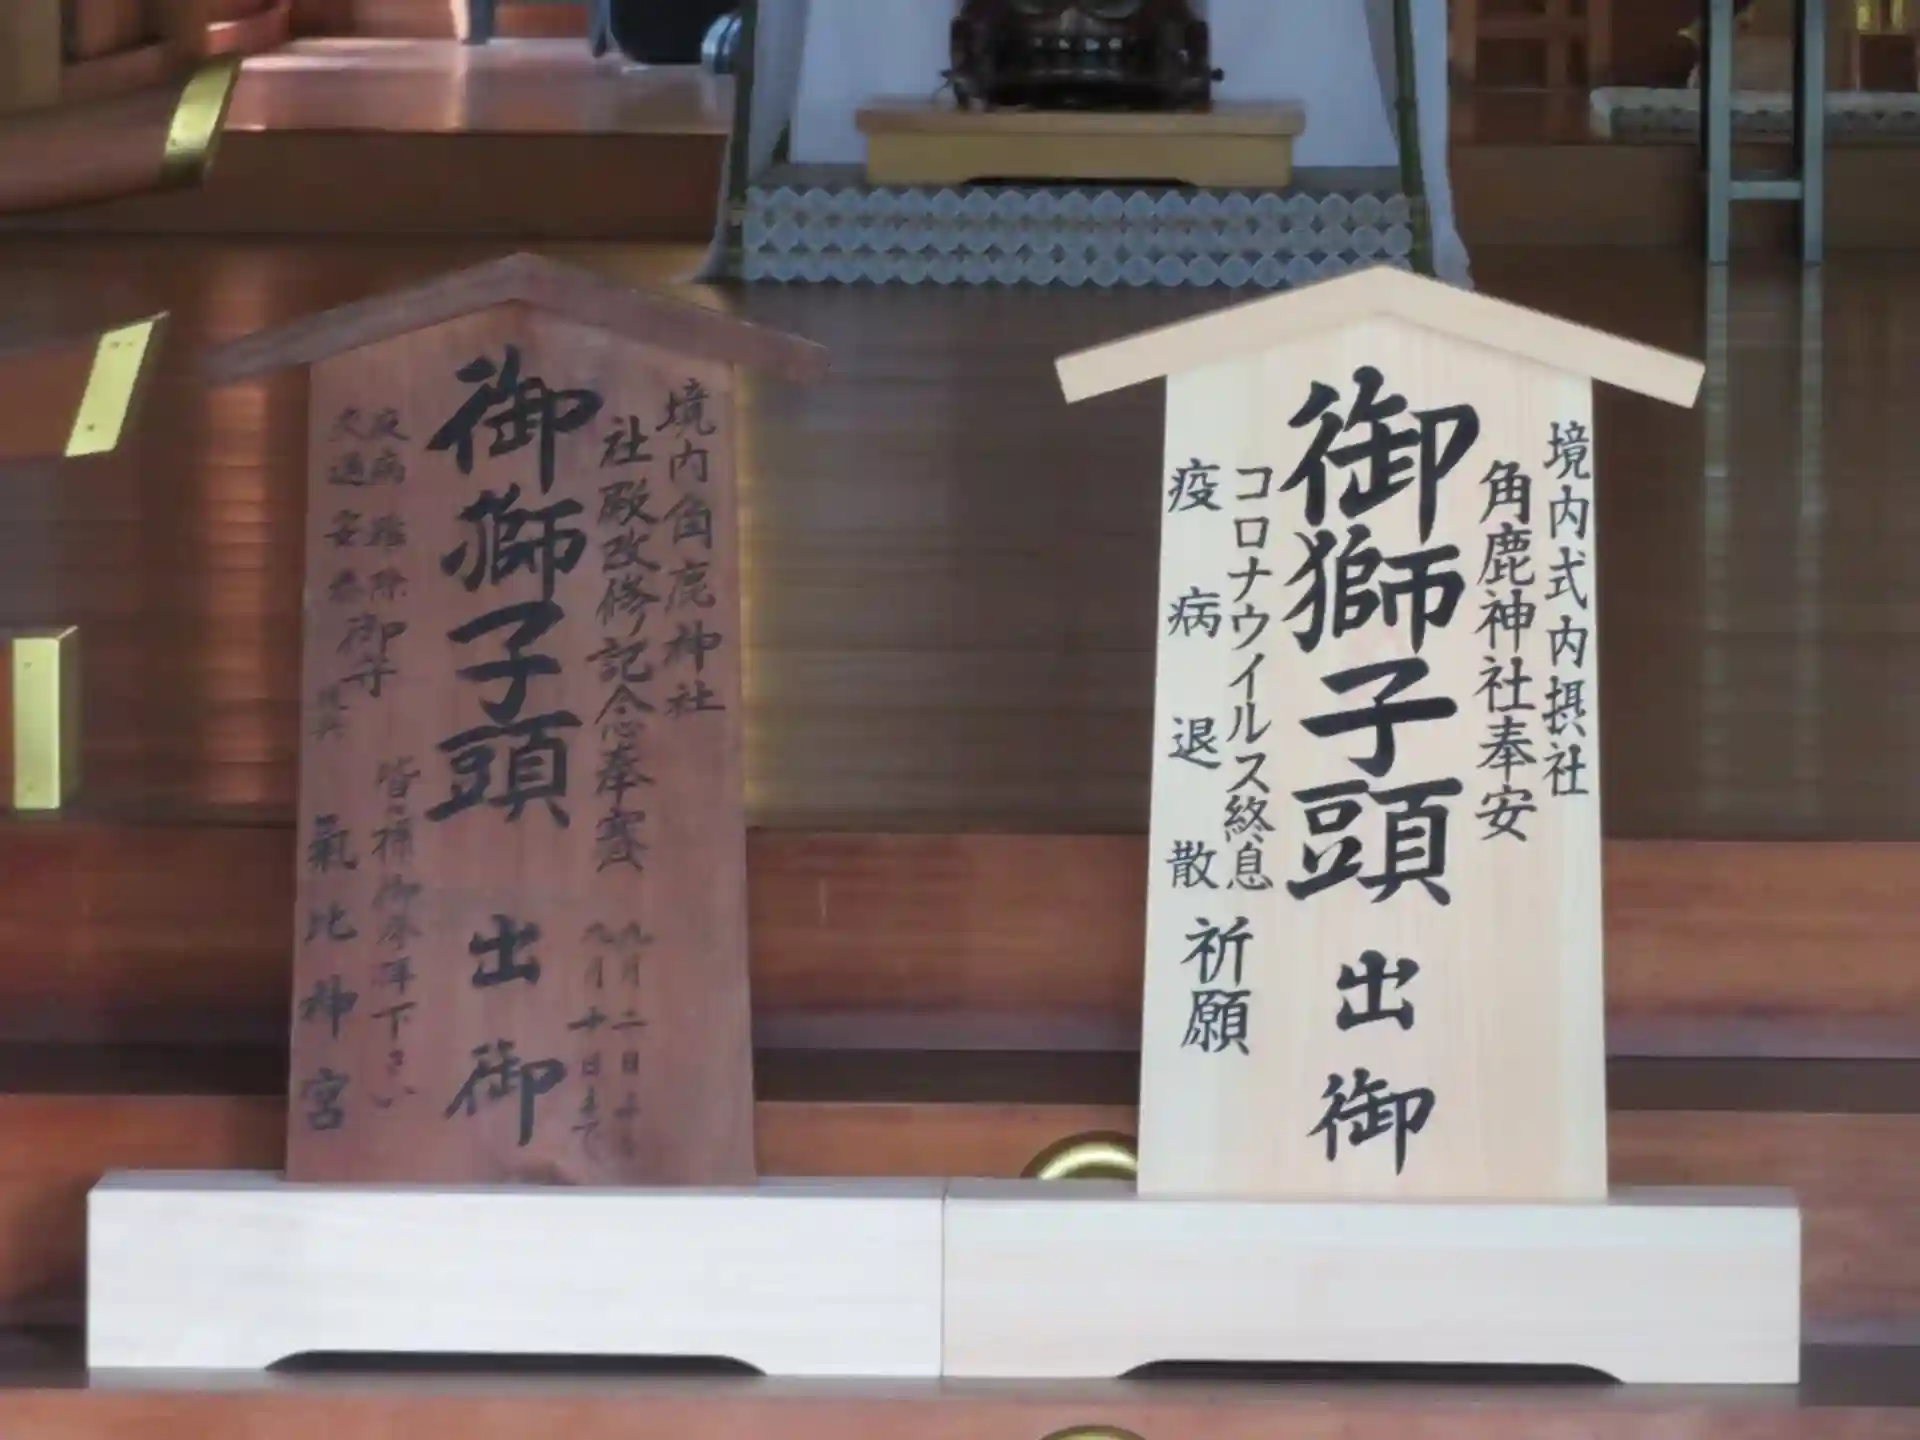 境内式内摂社
角鹿神社奉安
御獅子頭 出御
コロナウイルス終息
疫病退散
祈願
境内角鹿神社
社殿改修記念奉賽
九月二日
九月十日まで
御獅子頭 出御
疫病
除御守
皆々様御奉拝下さい
氣比神宮